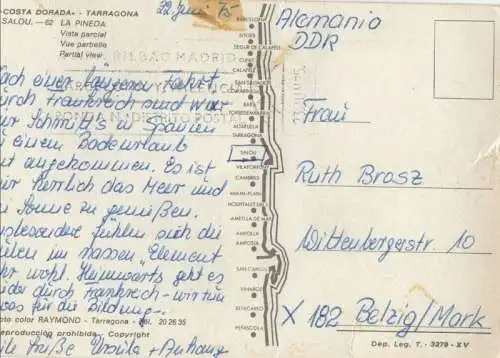 COSTA DORADA - TARRAGONA
SALOU. - 62 LA PINEDA
Vista parcial
Vue partielle
Partial view
22. Juni 75
BILBAO MADRID
DISTRITO POSTAL
Nach einer längeren Fahrt
durch Frankreich sind wir
Schmitt's in Spanien
zu einem Badeurlaub
gut angekommen. Es ist
herrlich das Meer und
Sonne zu genießen.
Insbesondere fühlen sich die
im nassen "Element
wohl. Heimwärts geht es
wieder durch Frankreich - wir tun
was für die Bildung.
Viele Grüße Ursula + Anhang
Foto color RAYMOND - Tarragona - Tel. 20 26 35
Reproducción prohibida. - Copyright
BARCELONA
SITGES
SEGUR DE CALAFELL
CUNIT
CALAFELL
SAN SALVADOR
COMARRUGA
BARA
TORREDEMBARRA
ALTAFULLA
TARRAGONA
SALOU
VILAFORTUNY
CAMBRILS
MIAMI-PLAYA
HOSPITALET
AMETLLA DE MAR
AMPOLLA
AMPOSTA
SAN CARLOS
VINAROZ
BENICARLO
PEÑISCOLA
Alemania
DDR
Frau
Ruth Brosz
Wittenbergerstr. 10
X 182 Belzig/Mark
Dep. Leg. T. - 3279 - XV